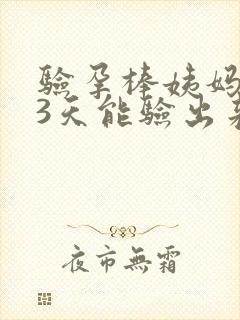 驗孕棒姨妈
3天能驗出
夜市無霜